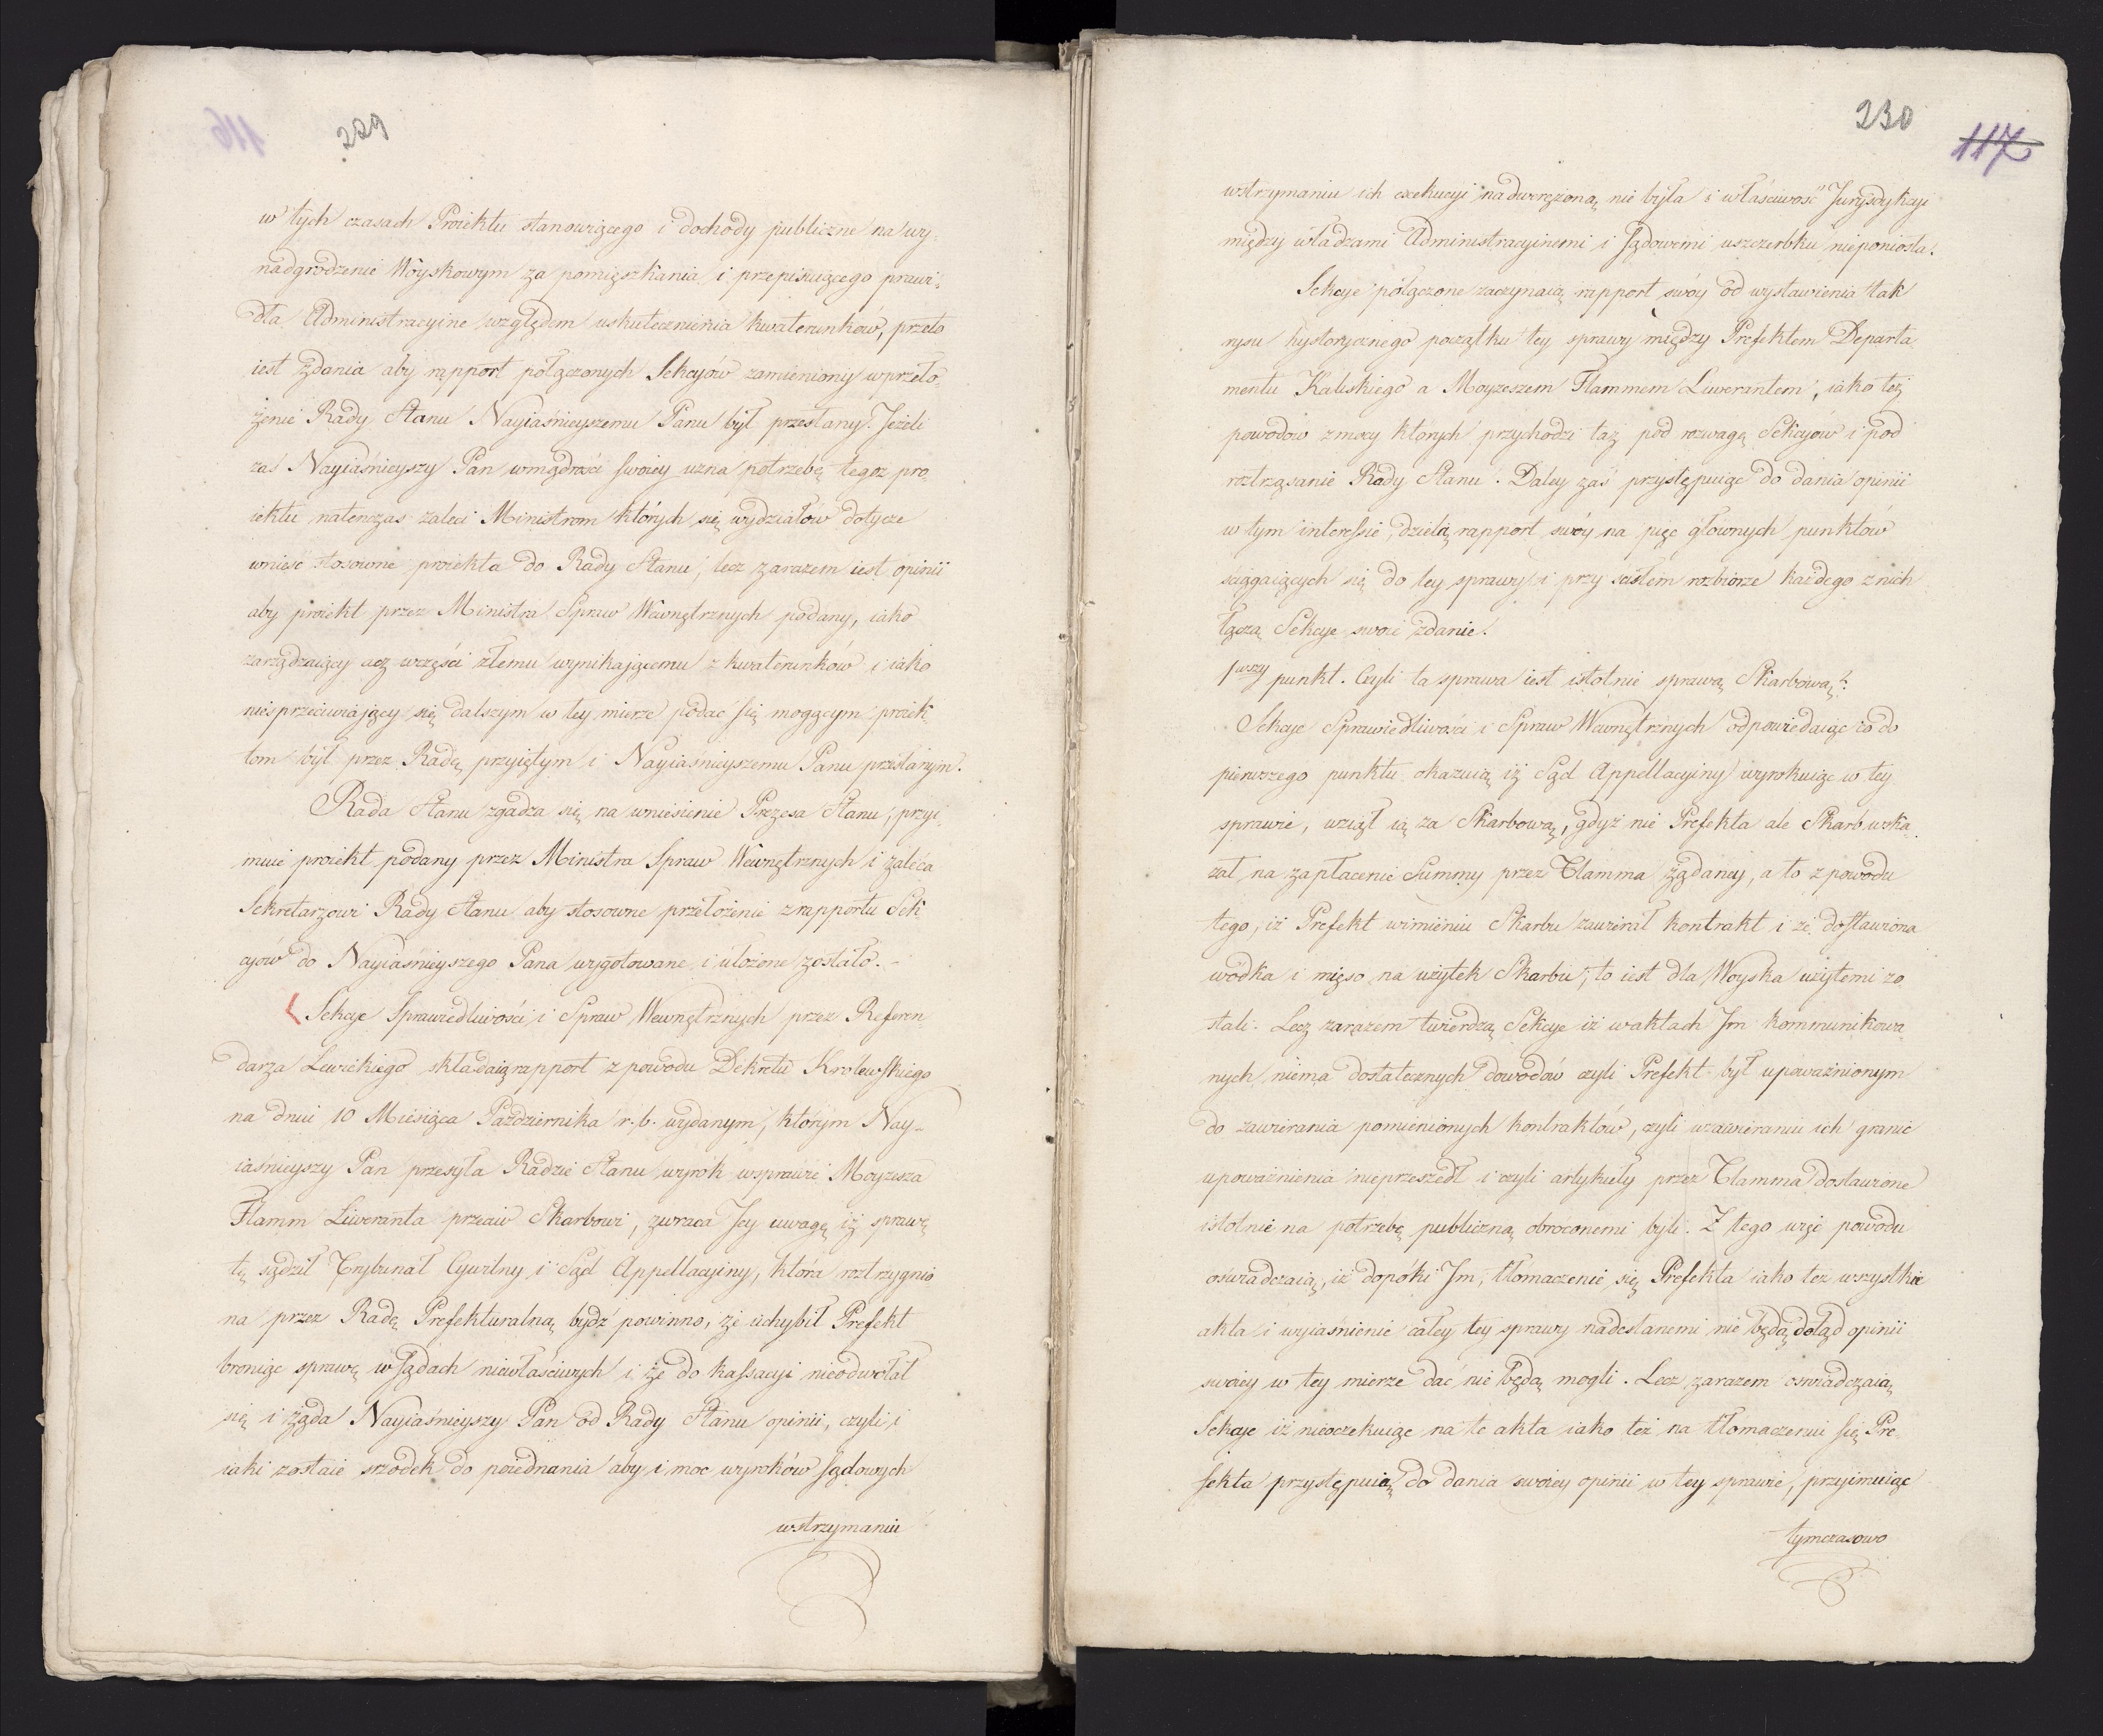 229
w tych czasach Proiektu stanowiącego i dochody publiczne na wy-
nadgrodzenie Woyskowym za pomięszkania i przepisuiącego prawi-
dła Administracyine względem uskutecznienia kwaterunków, przeto
iest zdania aby rapport połączonych Sekcyów zamieniony w przeło-
żenie Rady Stanu Nayiaśnieyszemu Panu był przesłany. Jeżeli
zaś Nayiaśnieyszy Pan w mądrości swoiey uzna potrzebę tegoz pro-
iektu natenczas zaleci Ministrom których się wydziałow dotycze
wnieść stosowne proiekta do Rady Stanu, lecz zarazem iest opinii
aby proiekt przez Ministra Spraw Wewnętrznych podany, iako
zarządzaiący acz w części złemu wynikającemu z kwaterunków i iako
niesprzeciwiający się dalszym w tey mierze podać się mogącym proiek-
tom był przez Radę przyiętym i Nayiaśnieyszemu Panu przesłanym.
Rada Stanu zgadza się na wniesienie Prezesa Stanu, przyi-
muie proiekt podany przez Ministra Spraw Wewnętrznych i zaleca
Sekretarzowi Rady Stanu aby stosowne przełożenie z rapportu Sek-
cyów do Nayiaśnieyszego Pana wygotowane i ułożone zostało. -
Sekcye Sprawiedliwości i Spraw Wewnętrznych przez Referen-
darza Lewickiego składaią rapport z powodu Dekretu Królewskiego
na dniu 10 Miesiąca Października r. b. wydanym, którym Nay-
iaśnieyszy Pan przesyła Radzie Stanu wyrok w sprawie Moyzesza
Flamm Liweranta przeciw Skarbowi, zwraca Jey uwagę iż sprawę
tę sądził Trybunał Cywilny i Sąd Appellacyiny, która roztrzygnio-
na przez Radę Prefekturalną bydź powinno, że uchybił Prefekt
broniąc sprawę w Sądach niewłaściwych i że do kassacyi nieodwołał
się i żąda Nayiaśnieyszy Pan od Rady Stanu opinii, czyli i
iaki zostaie srzodek do poiednania aby i moc wyroków sądowych
wstrzymaniu
230
117
wstrzymaniu ich exekucyi nadwerężoną nie była i właściwość Jurysdykcyi
między władzami Administracyinemi i Sądowemi uszczerbku nieponiosła.
Sekcye połączone zaczynaią rapport swóy od wystawienia tak
rysu hystorycznego początku tey sprawy między Prefektem Departa-
mentu Kaliskiego a Moyzeszem Flammem Liwerantem, iako też
powodow z mocy których przychodzi taż pod rozwagę Sekcyów i pod
roztrząsanie Rady Stanu. Daley zaś przystępuiąc do dania opinii
w tym interessie, dzielą rapport swóy na pięc głownych punktów
ściągaiących się do tey sprawy i przy scisłem rozbiorze każdego z nich
łączą Sekcye swoie zdanie.
1wszy punkt. Czyli ta sprawa iest istotnie sprawą Skarbową?
Sekcye Sprawiedliwości i Spraw Wewnętrznych odpowiedaiąc co do
pierwszego punktu okazuią iż Sąd Appellacyiny wyrokuiąc w tey
sprawie, wziął ią za Skarbową, gdyż nie Prefekta ale Skarb wska-
zał na zapłacenie Summy przez Flamma żądaney, a to z powodu
tego, iż Prefekt wimieniu Skarbu zawierał kontrakt i że dostawiona
wódka i mięso na użytek Skarbu, to iest dla Woyska użytemi zo-
stali. Lecz zarazem twierdzą Sekcye iż w aktach Im kommunikowa-
nych niema dostatecznych dowodów czyli Prefekt był upoważnionym
do zawierania pomienionych kontraktów, czyli w zawieraniu ich granic
upoważnienia nieprzeszedł i czyli artykuły przez Flamma dostawione
istotnie na potrzebę publiczną obróconemi byli. Z tego więc powodu
oświadczaią, iż dopóki Im, tłómaczenie się Prefekta iako tez wszystkie
akta i wyiaśnienie całey tey sprawy nadesłanemi nie będą dotąd opinii
swoiey w tey mierze dać nie będą mogli. Lecz zarazem oswiadczaią
Sekcye iż nieoczekuiąc na te akta iako też na tłomaczeniu się Pre-
fekta przystępuią do dania swoiey opinii w tey sprawie, przyimuiąc
tymczasowo